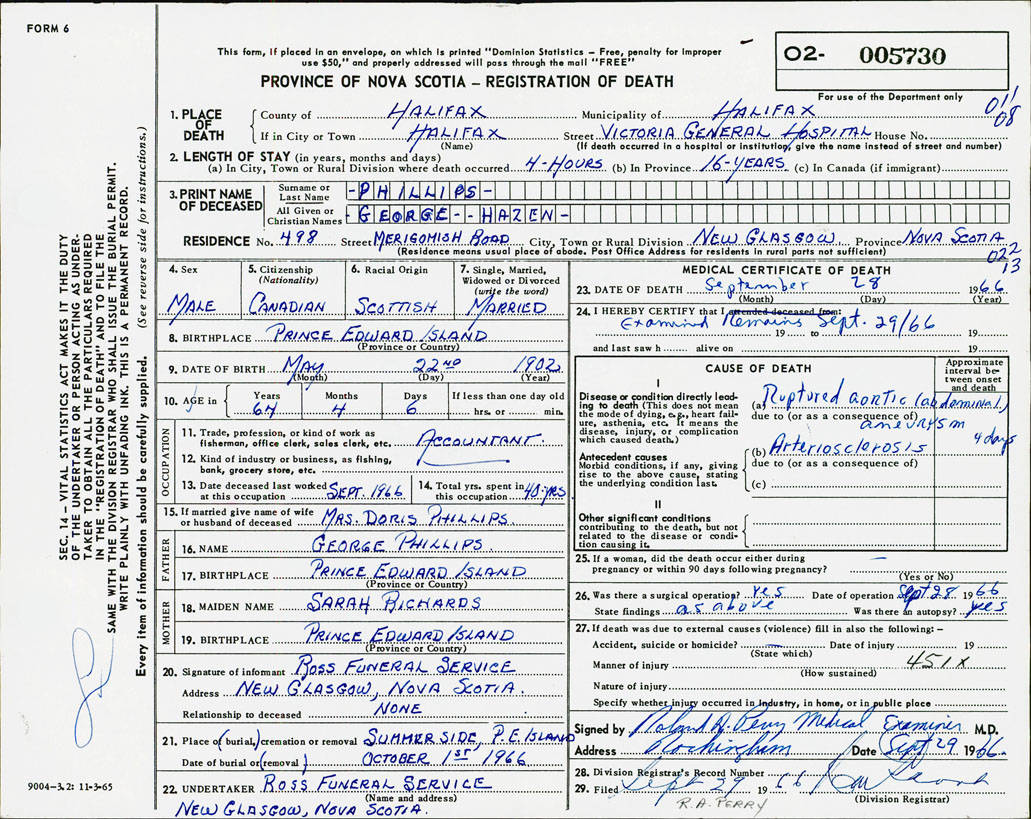 FORM 6
This form, if placed in an envelope, on which is printed "Dominion Statistics – Free, penalty for improper
use $50," and properly addressed will pass through the mail "FREE"
PROVINCE OF NOVA SCOTIA – REGISTRATION OF DEATH
02- 005730
For use of the Department only
011
08
1. PLACE OF DEATH
County of HALIFAX Municipality of HALIFAX
If in City or Town HALIFAX Street VICTORIA GENERAL HOSPITAL House No.
(Name) (If death occurred in a hospital or institution, give the name instead of street and number)
2. LENGTH OF STAY (in years, months and days)
(a) In City, Town or Rural Division where death occurred 4-HOURS (b) In Province 16-YEARS (c) In Canada (if immigrant)
3. PRINT NAME OF DECEASED
Surname or Last Name -PHILLIPS-
All Given or Christian Names -GEORGE--HAZEN-
RESIDENCE No. 498 Street MERIGOMISH ROAD City, Town or Rural Division NEW GLASGOW Province NOVA SCOTIA
(Residence means usual place of abode. Post Office Address for residents in rural parts not sufficient)
022
13
4. Sex
MALE
5. Citizenship
(Nationality)
CANADIAN
6. Racial Origin
SCOTTISH
7. Single, Married,
Widowed or Divorced
(write the word)
MARRIED
8. BIRTHPLACE PRINCE EDWARD ISLAND
(Province or Country)
9. DATE OF BIRTH MAY 22ND 1902
(Month) (Day) (Year)
10. AGE in
Years Months Days If less than one day old
64 4 6 hrs. or min.
OCCUPATION
11. Trade, profession, or kind of work as
fisherman, office clerk, sales clerk, etc. ACCOUNTANT
12. Kind of industry or business, as fishing,
bank, grocery store, etc.
13. Date deceased last worked
at this occupation SEPT. 1966
14. Total yrs. spent in
this occupation 40-YRS
15. If married give name of wife
or husband of deceased MRS. DORIS PHILLIPS.
FATHER
16. NAME GEORGE PHILLIPS.
17. BIRTHPLACE PRINCE EDWARD ISLAND
(Province or Country)
MOTHER
18. MAIDEN NAME SARAH RICHARDS
19. BIRTHPLACE PRINCE EDWARD ISLAND
(Province or Country)
20. Signature of informant ROSS FUNERAL SERVICE
Address NEW GLASGOW, NOVA SCOTIA.
Relationship to deceased NONE
21. Place of (burial,) cremation or removal SUMMERSIDE, P.E. ISLAND
Date of burial or (removal) OCTOBER 1ST 1966
22. UNDERTAKER ROSS FUNERAL SERVICE
(Name and address)
NEW GLASGOW, NOVA SCOTIA.
MEDICAL CERTIFICATE OF DEATH
23. DATE OF DEATH September 28 1966
(Month) (Day) (Year)
24. I HEREBY CERTIFY that I attended deceased from:
Examined Remains Sept. 29/66
19 to 19
and last saw h alive on 19
CAUSE OF DEATH
Approximate
interval be-
tween onset
and death
I
Disease or condition directly lead-
ing to death (This does not mean
the mode of dying, e.g., heart fail-
ure, asthenia, etc. It means the
disease, injury, or complication
which caused death.)
(a) Ruptured aortic (abdominal)
due to (or as a consequence of) aneurysm
Antecedent causes
Morbid conditions, if any, giving
rise to the above cause, stating
the underlying condition last.
(b) Arteriosclerosis 4 days
due to (or as a consequence of)
(c)
II
Other significant conditions
contributing to the death, but not
related to the disease or condi-
tion causing it.
25. If a woman, did the death occur either during
pregnancy or within 90 days following pregnancy?
(Yes or No)
26. Was there a surgical operation? yes Date of operation Sept 28 1966
State findings as above Was there an autopsy? yes
27. If death was due to external causes (violence) fill in also the following: –
Accident, suicide or homicide? Date of injury 19
(State which)
Manner of injury 451X
(How sustained)
Nature of injury
Specify whether injury occurred in industry, in home, or in public place
Signed by Roland A. Perry Medical Examiner M.D.
Address Rockingham Date Sept 29 1966.
28. Division Registrar's Record Number
29. Filed Sept 29 1966
(Division Registrar)
R.A. PERRY
SEC. 14 – VITAL STATISTICS ACT MAKES IT THE DUTY
OF THE UNDERTAKER OR PERSON ACTING AS UNDER-
TAKER TO OBTAIN ALL THE PARTICULARS REQUIRED
IN THE "REGISTRATION OF DEATH" AND TO FILE THE
SAME WITH THE DIVISION REGISTRAR WHO SHALL ISSUE THE BURIAL PERMIT.
WRITE PLAINLY WITH UNFADING INK. THIS IS A PERMANENT RECORD.
Every item of information should be carefully supplied. (See reverse side for instructions.)
9004-3.2: 11-3-65